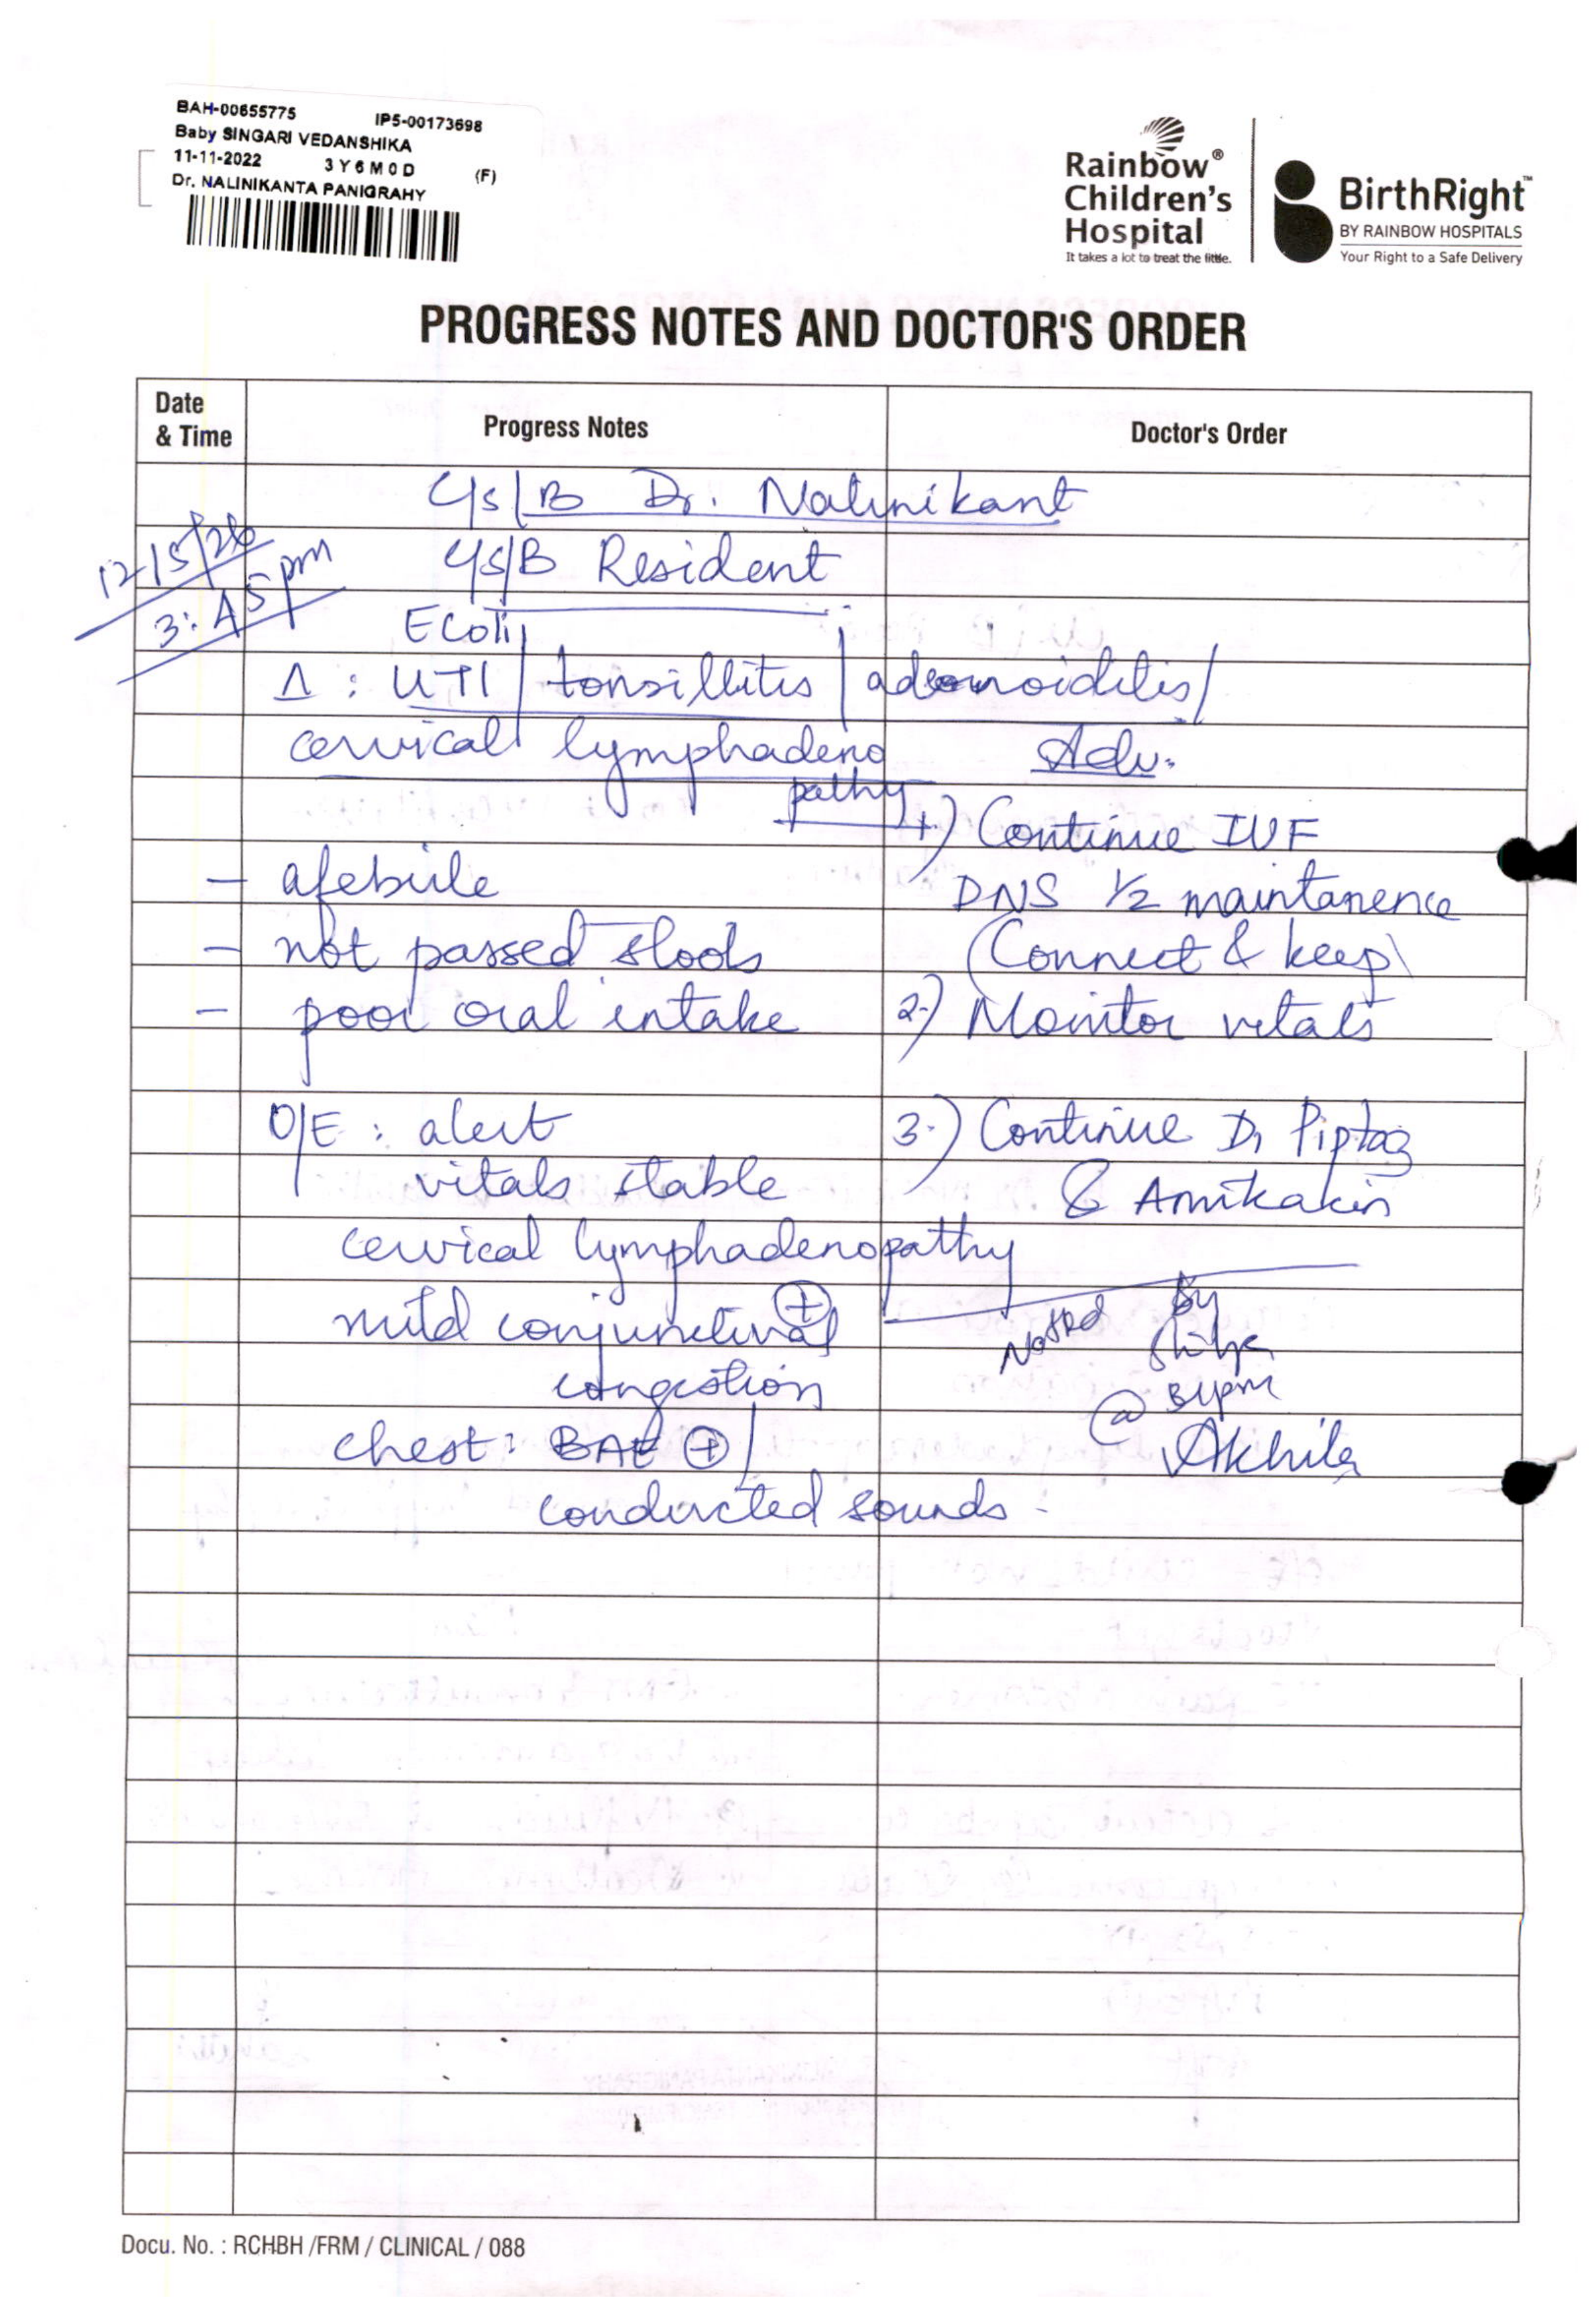 BAH-00655775 IP5-00173698
Baby SINGARI VEDANSHIKA
11-11-2022 3Y6M0D (F)
Dr. NALINIKANTA PANIGRAHY
Rainbow®
Children's
Hospital
It takes a lot to treat the little.
BirthRight™
BY RAINBOW HOSPITALS
Your Right to a Safe Delivery
PROGRESS NOTES AND DOCTOR'S ORDER
Date
& Time
Progress Notes
Doctor's Order
C/S/B Dr. Nalinikant
12/5/26
3:45pm
C/S/B Resident
E Coli
Δ : UTI / tonsillitis / adenoiditis /
cervical lymphadeno
pathy
- afebrile
- not passed stools
- poor oral intake
O/E : alert
vitals stable
cervical lymphadenopathy
⊕
mild conjunctival
congestion
chest : BAE ⊕ /
conducted sounds -
Adv.
1.) Continue IVF
DNS 1/2 maintanence
(Connect & keep)
2.) Monitor vitals
3.) Continue D1 Piptaz
& Amikakin
Noted By
Shilpa
@
Akhila
Docu. No. : RCHBH /FRM / CLINICAL / 088